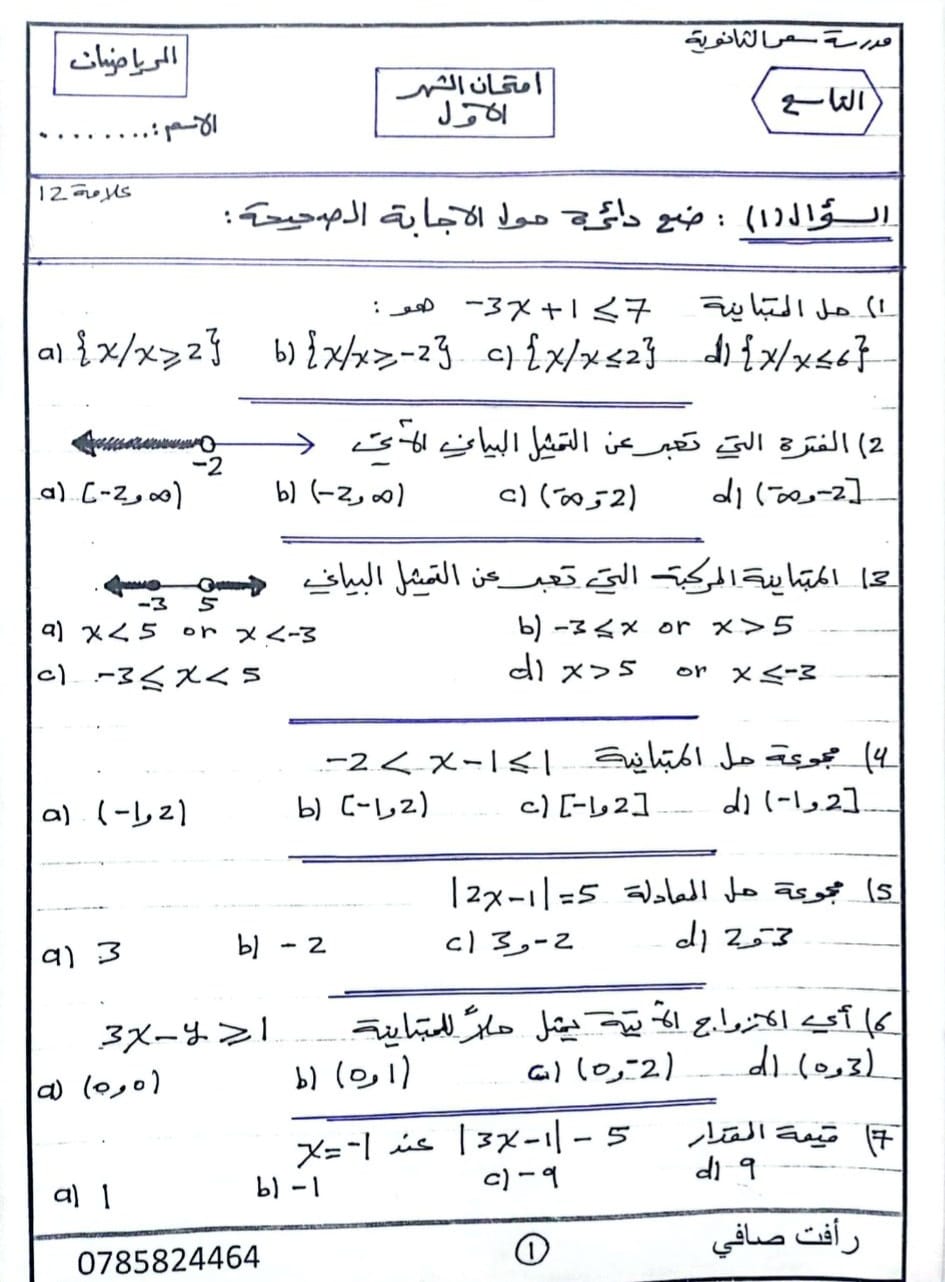 مدرسة سحر الثانوية
الرياضيات
امتحان الشهر
الأول
التاسع
الاسم: ........
علامة 12
السؤال (1) : ضع دائرة حول الاجابة الصحيحة :
1) حل المتباينة -3x + 1 ≤ 7 هو :
a) {x/x ≥ 2} b) {x/x ≥ -2} c) {x/x ≤ 2} d) {x/x ≤ 6}
2) الفترة التي تعبر عن التمثيل البياني الآتي
-2
a) [-2, ∞) b) (-2, ∞) c) (-∞, -2) d) (-∞, -2]
3) المتباينة المركبة التي تعبر عن التمثيل البياني
-3 5
a) x < 5 or x < -3 b) -3 ≤ x or x > 5
c) -3 ≤ x < 5 d) x > 5 or x ≤ -3
4) مجموعة حل المتباينة -2 < x - 1 ≤ 1
a) (-1, 2) b) [-1, 2) c) [-1, 2] d) (-1, 2]
5) مجموعة حل المعادلة |2x - 1| = 5
a) 3 b) -2 c) 3, -2 d) 2, -3
6) أي الازواج الآتية يمثل حلاً للمتباينة 3x - y ≥ 1
a) (0, 0) b) (0, 1) c) (0, -2) d) (0, 3)
7) قيمة المقدار |3x - 1| - 5 عند x = -1
a) 1 b) -1 c) -9 d) 9
رأفت صافي
1
0785824464